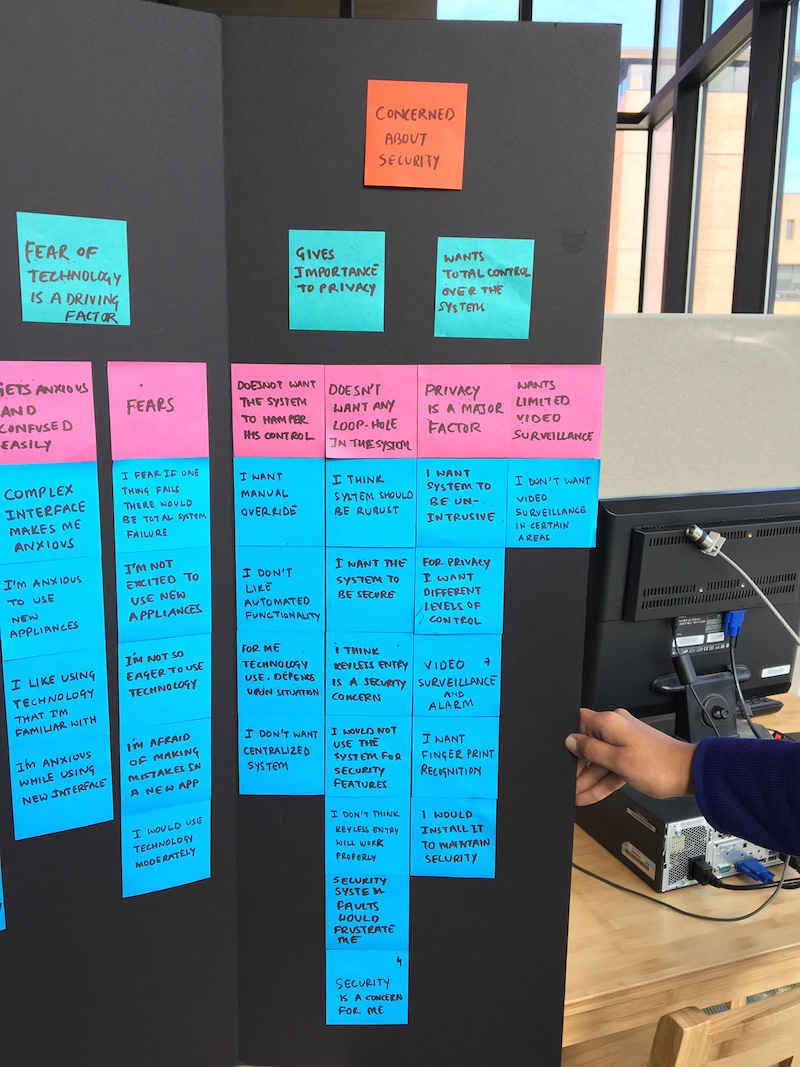 CONCERNED
ABOUT
SECURITY
FEAR OF
TECHNOLOGY
IS A DRIVING
FACTOR
GIVES
IMPORTANCE
TO PRIVACY
WANTS
TOTAL CONTROL
OVER THE
SYSTEM
GETS ANXIOUS
AND
CONFUSED
EASILY
COMPLEX
INTERFACE
MAKES ME
ANXIOUS
I'M ANXIOUS
TO USE
NEW
APPLIANCES
I LIKE USING
TECHNOLOGY
THAT I'M
FAMILIAR WITH
I'M ANXIOUS
WHILE USING
NEW INTERFACE
FEARS
I FEAR IF ONE
THING FAILS
THERE WOULD
BE TOTAL SYSTEM
FAILURE
I'M NOT
EXCITED TO
USE NEW
APPLIANCES
I'M NOT SO
EAGER TO USE
TECHNOLOGY
I'M AFRAID
OF MAKING
MISTAKES IN
A NEW APP
I WOULD USE
TECHNOLOGY
MODERATELY
DOES NOT WANT
THE SYSTEM
TO HAMPER
HIS CONTROL
I WANT
MANUAL
OVERRIDE
I DON'T
LIKE
AUTOMATED
FUNCTIONALITY
FOR ME
TECHNOLOGY
USE. DEPENDS
UPON SITUATION
I DON'T WANT
CENTRALIZED
SYSTEM
DOESN'T
WANT ANY
LOOP-HOLE
IN THE SYSTEM
I THINK
SYSTEM SHOULD
BE RUBUST
I WANT THE
SYSTEM TO
BE SECURE
I THINK
KEYLESS ENTRY
IS A SECURITY
CONCERN
I WOULD NOT
USE THE
SYSTEM FOR
SECURITY
FEATURES
I DON'T THINK
KEYLESS ENTRY
WILL WORK
PROPERLY
SECURITY
SYSTEM
FAULTS
WOULD
FRUSTRATE
ME
4
SECURITY
IS A CONCERN
FOR ME
PRIVACY
IS A MAJOR
FACTOR
I WANT
SYSTEM TO
BE UN-
INTRUSIVE
FOR PRIVACY
I WANT
DIFFERENT
LEVELS OF
CONTROL
VIDEO 7
SURVEILLANCE
AND
ALARM
I WANT
FINGER PRINT
RECOGNITION
I WOULD
INSTALL IT
TO MAINTAIN
SECURITY
WANTS
LIMITED
VIDEO
SURVEILLANCE
I DON'T WANT
VIDEO
SURVEILLANCE
IN CERTAIN
AREAS